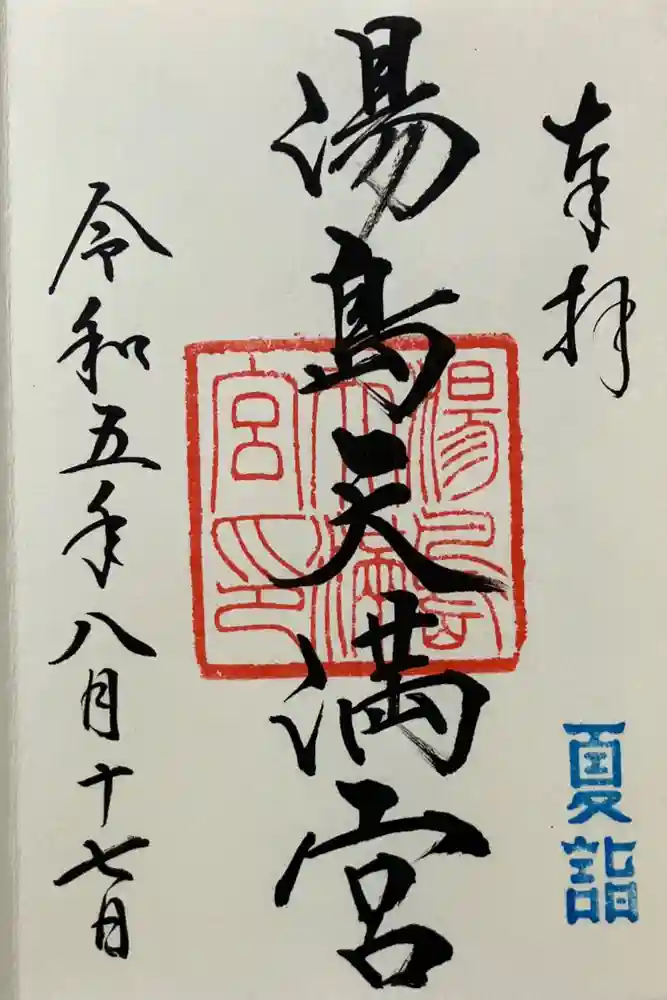 奉拝
夏詣
湯島天満宮
湯島
天満
宮印
令和五年八月十七日